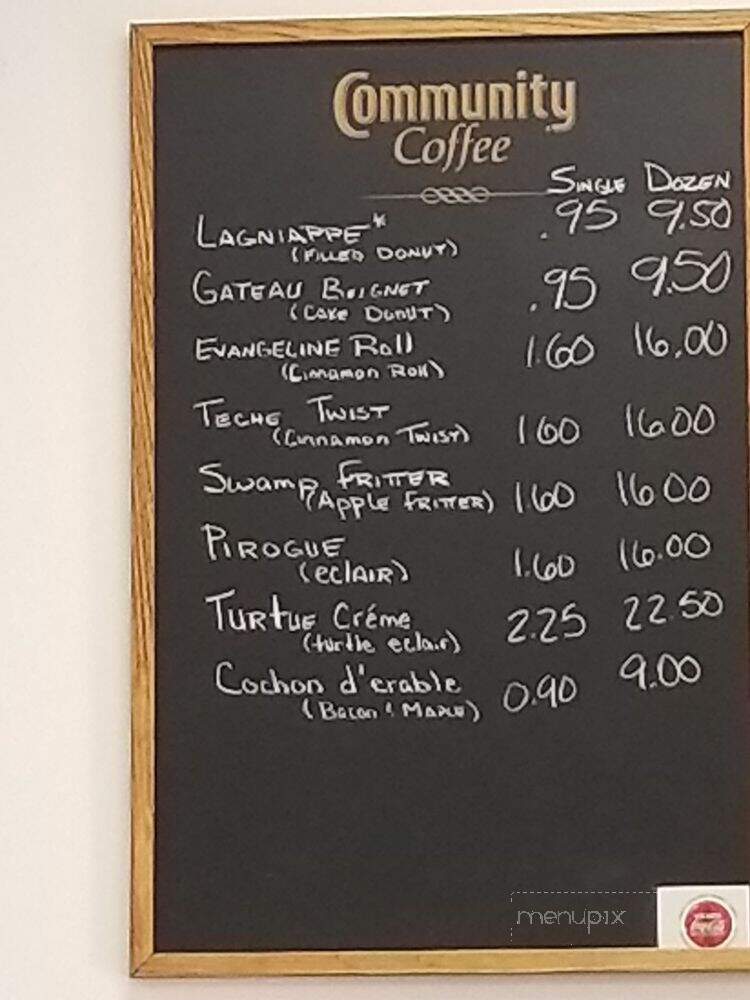 Community
Coffee
SINGLE DOZEN
LAGNIAPPE* .95 9.50
(FILLED DONUT)
GATEAU BEIGNET .95 9.50
(CAKE DONUT)
EVANGELINE Roll 1.60 16.00
(Cinnamon Roll)
TECHE TWIST 1 60 16 00
(Cinnamon Twist)
Swamp FRITTER 1 60 16 00
(Apple FRITTER)
PIROGUE 1.60 16.00
(eclAIR)
TURtLE Créme 2.25 22.50
(turtle eclair)
Cochon d'erable 0.90 9.00
(Bacon & MAPLE)
menupix